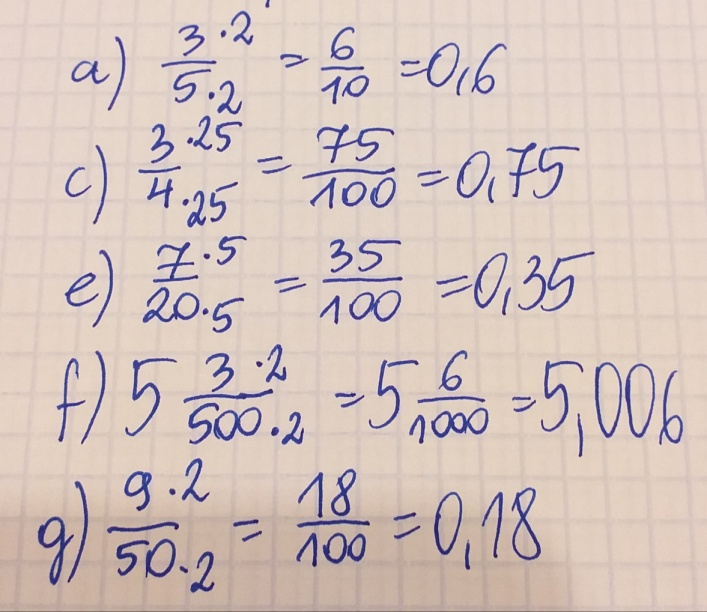 a) 3·2/5·2 = 6/10 = 0,6
c) 3·25/4·25 = 75/100 = 0,75
e) 7·5/20·5 = 35/100 = 0,35
f) 5 3·2/500·2 = 5 6/1000 = 5,006
g) 9·2/50·2 = 18/100 = 0,18